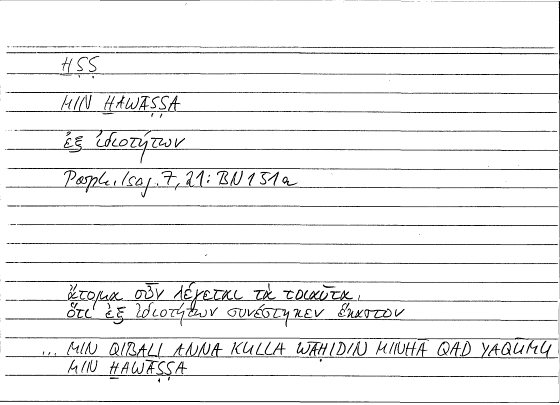 H̱ṢṢ
MIN H̱AWĀṢṢA
ἐξ ἰδιοτήτων
Porph. Isag. 7, 21: BN 151a
ἄτομα οὖν λέγεται τὰ τοιαῦτα,
ὅτι ἐξ ἰδιοτήτων συνέστηκεν ἕκαστον
... MIN QIBALI ANNA KULLA WĀḤIDIN MINHĀ QAD YAQŪMU
MIN H̱AWĀṢṢA